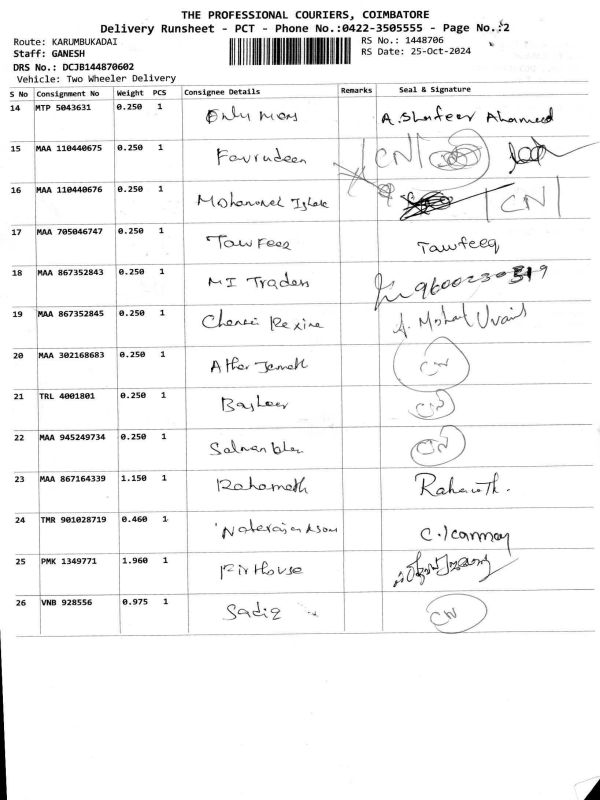 THE PROFESSIONAL COURIERS, COIMBATORE
Delivery Runsheet - PCT - Phone No.:0422-3505555 - Page No.:2
Route: KARUMBUKADAI RS No.: 1448706
Staff: GANESH RS Date: 25-Oct-2024
DRS No.: DCJB144870602
Vehicle: Two Wheeler Delivery
S No Consignment No Weight PCS Consignee Details Remarks Seal & Signature
14 MTP 5043631 0.250 1 Only Mens A. Shafeer Ahamed
15 MAA 110440675 0.250 1 CN
16 MAA 110440676 0.250 1 CN
17 MAA 705046747 0.250 1 Tawfeeq Tawfeeq
18 MAA 867352843 0.250 1 MI Traders
19 MAA 867352845 0.250 1 Chennai Rexine A.
20 MAA 302168683 0.250 1 CN
21 TRL 4001801 0.250 1 Basheer CN
22 MAA 945249734 0.250 1 CN
23 MAA 867164339 1.150 1 Rahamath
24 TMR 901028719 0.460 1
25 PMK 1349771 1.960 1 Firthouse
26 VNB 928556 0.975 1 Sadiq CN